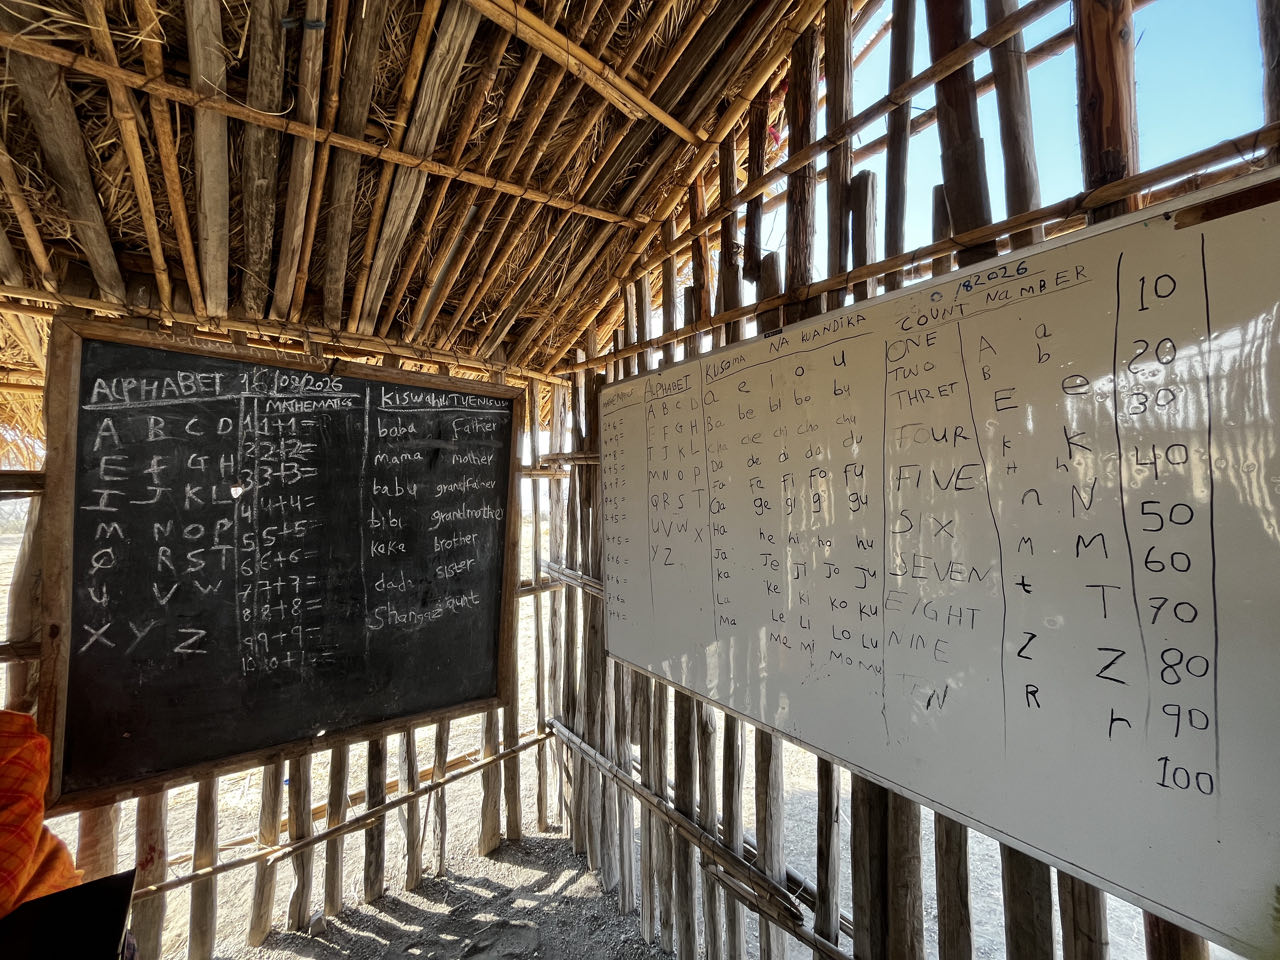 ALPHABET 16/08/2026
A B C D
E f G H
I J K L
M N O P
Q R S T
U V W
X Y Z
MATHEMATICS
1 1+1=
2 2+2=
3 3+3=
4 4+4=
5 5+5=
6 6+6=
7 7+7=
8 8+8=
9 9+9=
10
baba Father
mama mother
babu grandfather
bibi grandmother
kaka brother
dada sister
Shangazi aunt
ALPHABET
A B C D
E F G H
I J K L
M N O P
Q R S T
U V W X
Y Z
KUSOMA NA KUANDIKA
a e i o u
Ba be bi bo bu
cha che chi cho chu
Da de di do du
Fa Fe Fi Fo Fu
Ga ge gi go gu
Ha he hi ho hu
Ja Je Ji Jo Ju
ka ke ki ko ku
La Le Li Lo Lu
Ma Me mi Mo Mu
82026
COUNT NaMBER
ONE
TWO
THRET
FOUR
FIVE
SIX
SEVEN
EIGHT
NINE
TEN
A a
B b
E e
k K
H h
n N
M M
t T
Z Z
R r
10
20
30
40
50
60
70
80
90
100